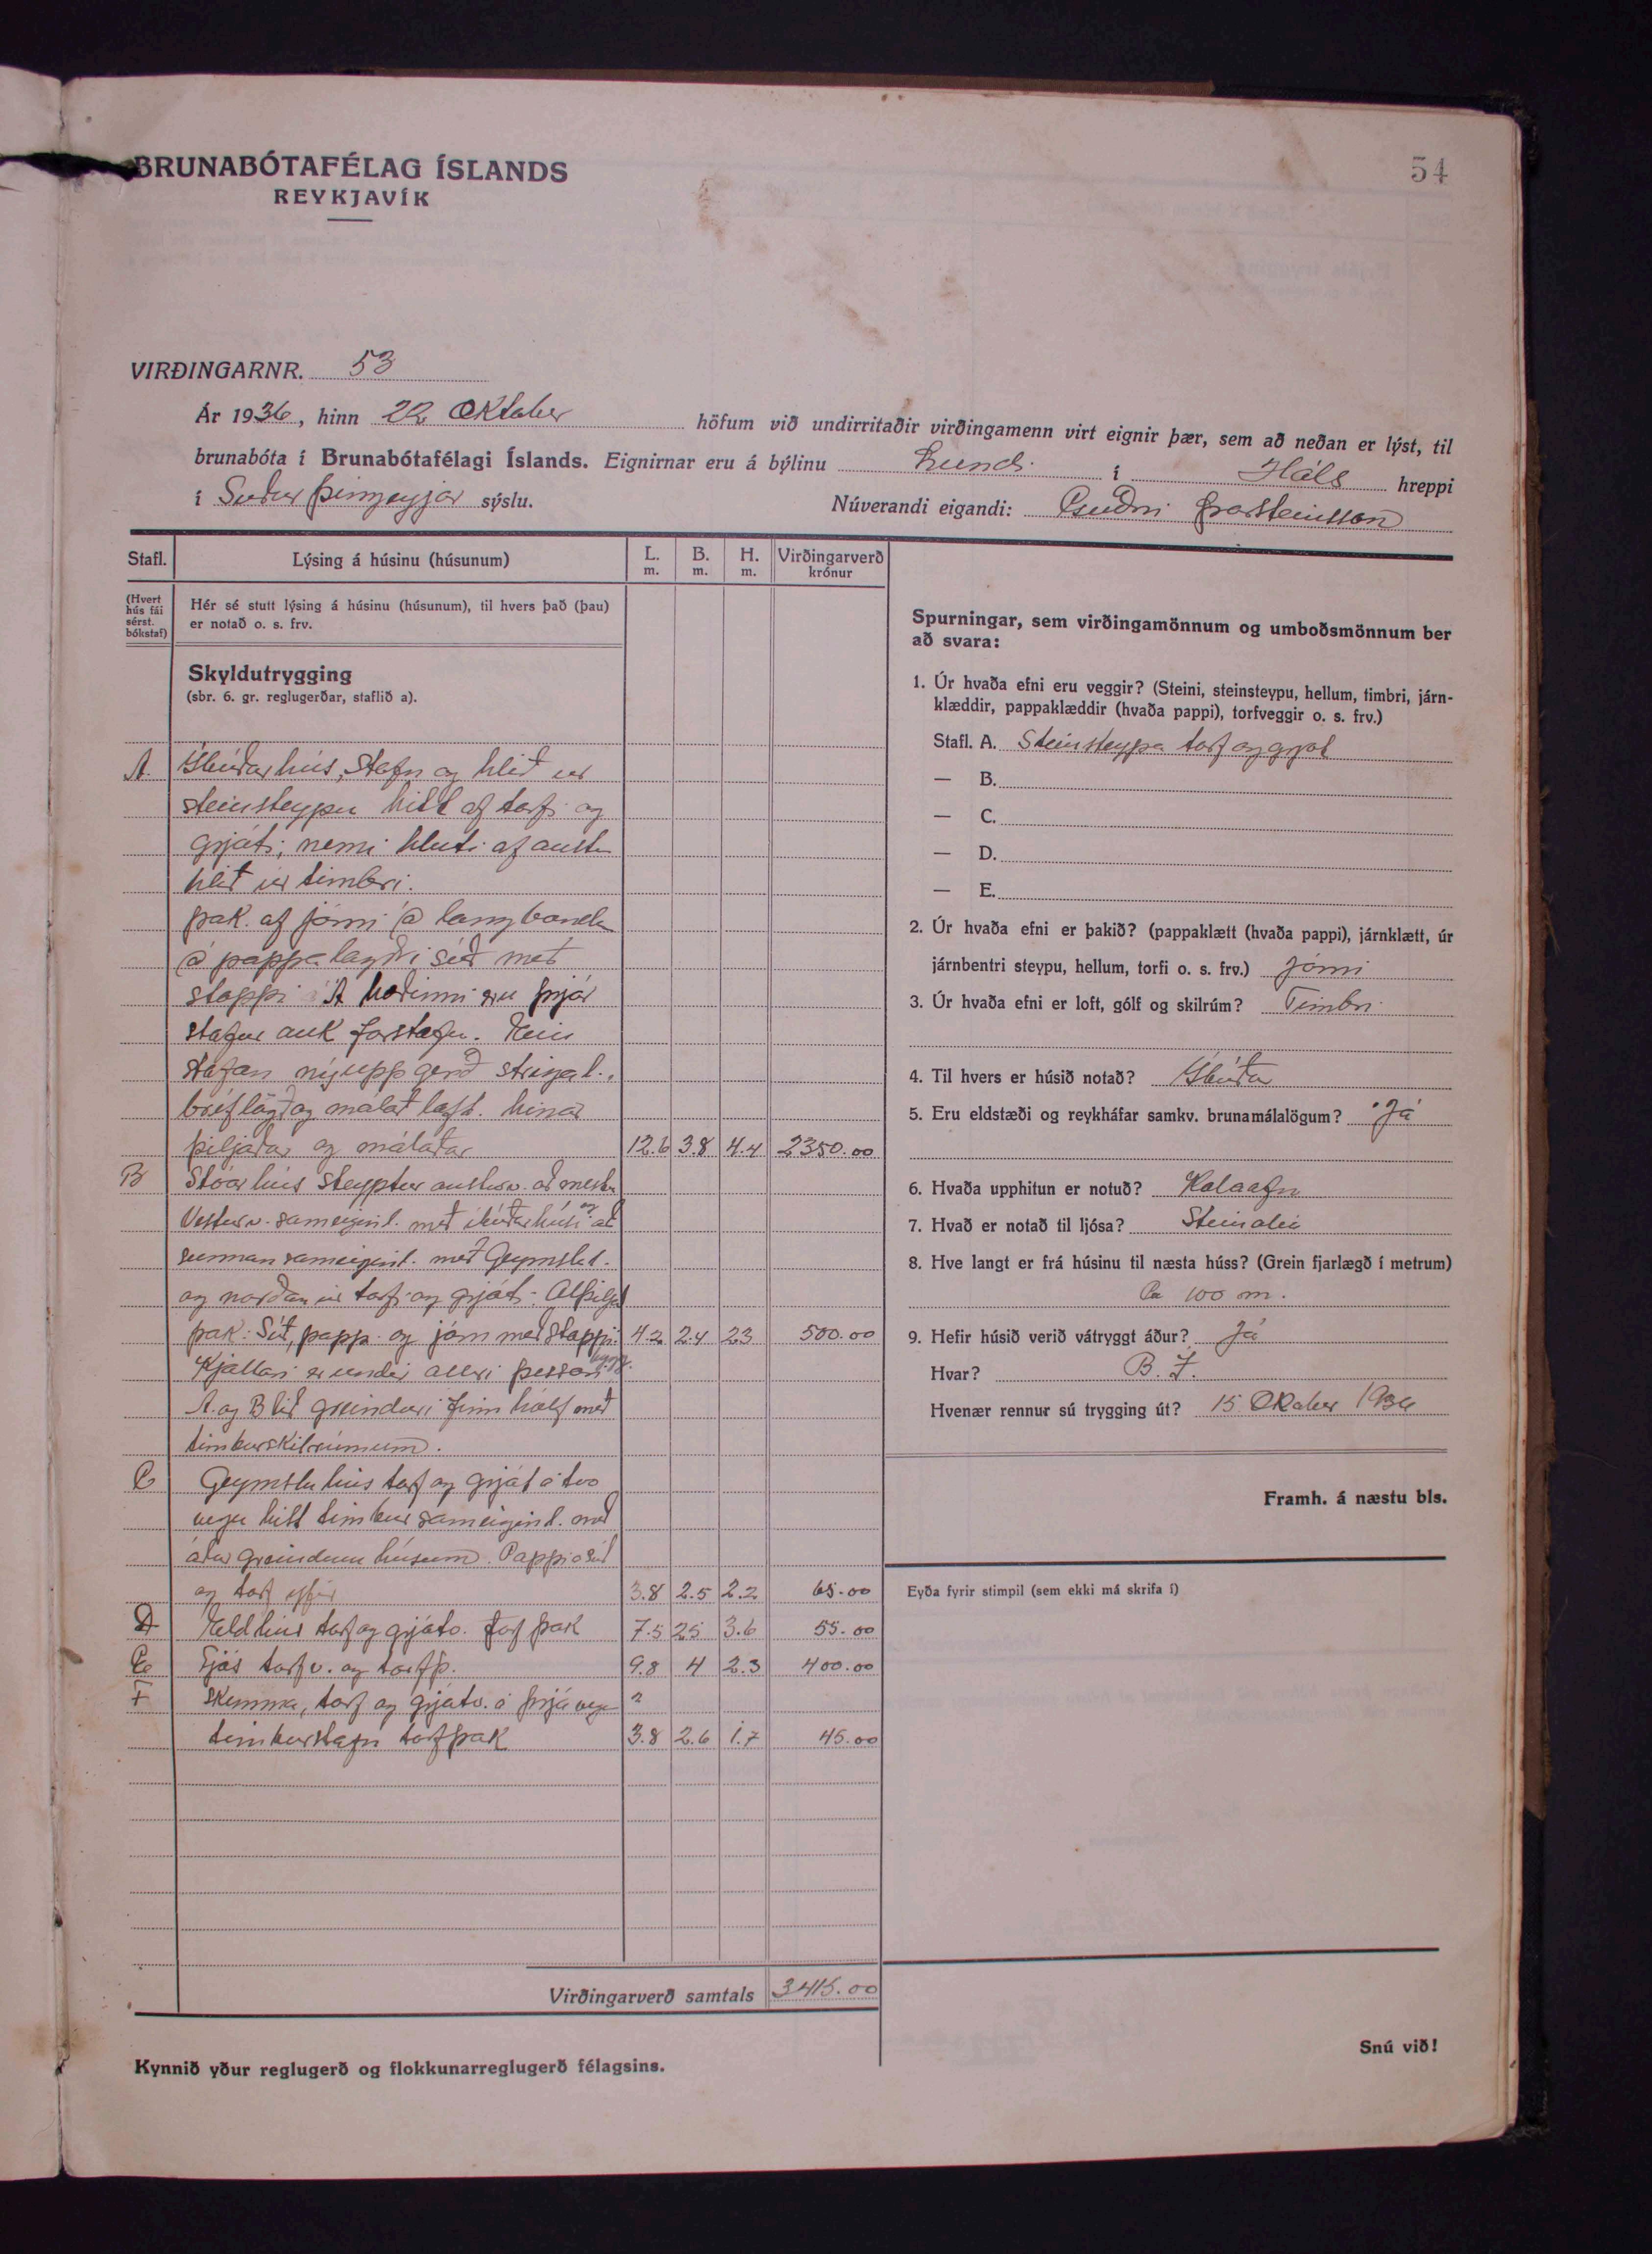 BRUNABÓTAFÉLAG ÍSLANDS
REYKJAVÍK
54
VIRÐINGARNR. 53
Ár 1936, hinn 22 Oktober höfum við undirritaðir virðingamenn virt eignir þær, sem að neðan er lýst, til
brunabóta í Brunabótafélagi Íslands. Eignirnar eru á býlinu Lundi í Háls hreppi
í Suður þingeyjar sýslu. Núverandi eigandi: Guðni Þorsteinsson
Stafl.
Lýsing á húsinu (húsunum)
L. m.
B. m.
H. m.
Virðingarverð krónur
(Hvert hús fái sérst. bókstaf)
Hér sé stutt lýsing á húsinu (húsunum), til hvers það (þau)
er notað o. s. frv.
Skyldutrygging
(sbr. 6. gr. reglugerðar, staflið a).
A. Íbúðarhús, Stafn og hlið úr
steinsteypu hitt af torfi og
grjóti, nema hluti af austur
hlið úr timbri.
Þak af járni á langbönd
á pappalagðri súð með
stoppi. Á hæðinni eru þrjár
stofur auk forstofu. Ein
stofan nýuppgerð strigal.,
bréflögð og málað loft. hinar
þiljaðar og málaðar 12.6 3.8 4.4 2350.00
B Stóarhús steyptur austurv. að mestu
Vesturv. sameiginl. með íbúðarhúsi og að
sunnan sameiginl. með Geymslul.
og norðan úr torfi og grjóti. Alþiljað
þak: Súð, papp. og járn með stoppi. 4.2 2.4 2.3 500.00
Kjallari er undir allri þessari bygg.
A. og B lið greindur í fimm hólf með
timburskilrúmum.
C Geymsluhús torf og grjót á tvo
vegu hitt timbur sameiginl. með
áður greindum húsum. Pappi á súð
og torf yfir 3.8 2.5 2.2 65.00
D Eldhús torf og grjótv. torfþak 7.5 2.5 3.6 55.00
E Fjós torfv. og torfþ. 9.8 4 2.3 400.00
F Skemma, torf og grjótv. á þrjá vegu
timburstafn torfþak 3.8 2.6 1.7 45.00
Virðingarverð samtals 3415.00
Kynnið yður reglugerð og flokkunarreglugerð félagsins.
Spurningar, sem virðingamönnum og umboðsmönnum ber
að svara:
1. Úr hvaða efni eru veggir? (Steini, steinsteypu, hellum, timbri, járn-
klæddir, pappaklæddir (hvaða pappi), torfveggir o. s. frv.)
Stafl. A. Steinsteypa torf og grjót
— B.
— C.
— D.
— E.
2. Úr hvaða efni er þakið? (pappaklætt (hvaða pappi), járnklætt, úr
járnbentri steypu, hellum, torfi o. s. frv.) Járni
3. Úr hvaða efni er loft, gólf og skilrúm? Timbri
4. Til hvers er húsið notað? Íbúðar
5. Eru eldstæði og reykháfar samkv. brunamálalögum? Já
6. Hvaða upphitun er notuð? Kolaofn
7. Hvað er notað til ljósa? Steinolía
8. Hve langt er frá húsinu til næsta húss? (Grein fjarlægð í metrum)
Ca 100 m.
9. Hefir húsið verið vátryggt áður? Já
Hvar? B. Í.
Hvenær rennur sú trygging út? 15 Oktober 1936
Framh. á næstu bls.
Eyða fyrir stimpil (sem ekki má skrifa í)
Snú við!